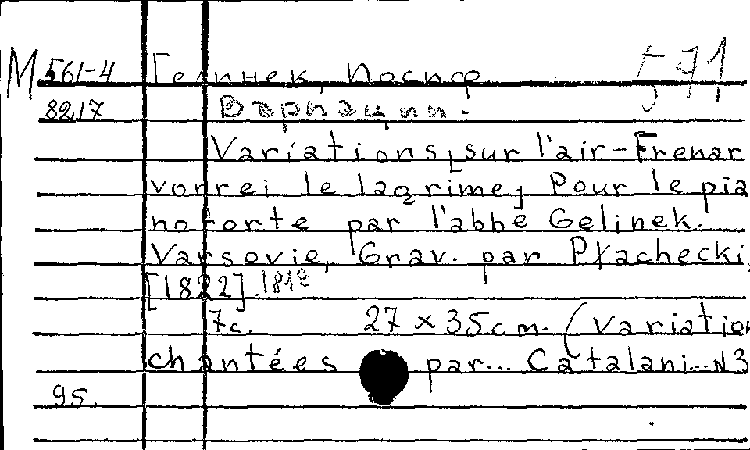 М 561-4 Гелинек, Иосиф 571
8217 Вариации.
Variations [sur l'air-Frenar
vorrei le lagrime] Pour le pia
noforte par l'abbé Gelinek.
Varsovie, Grav. par Płachecki,
[1822]. 1818
7c. 27 x 35cm. (Variation
chantées par... Catalani...N3
95.